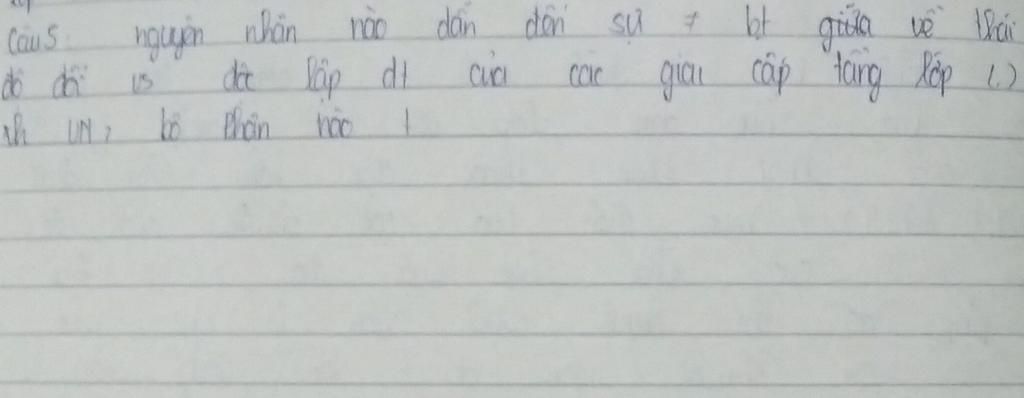 câu 5. nguyên nhân nào dẫn đến sự ≠ bt giữa về thái
độ đối vs độc lập dt của các giai cấp tầng lớp (.)
xh VN, bộ phận nào